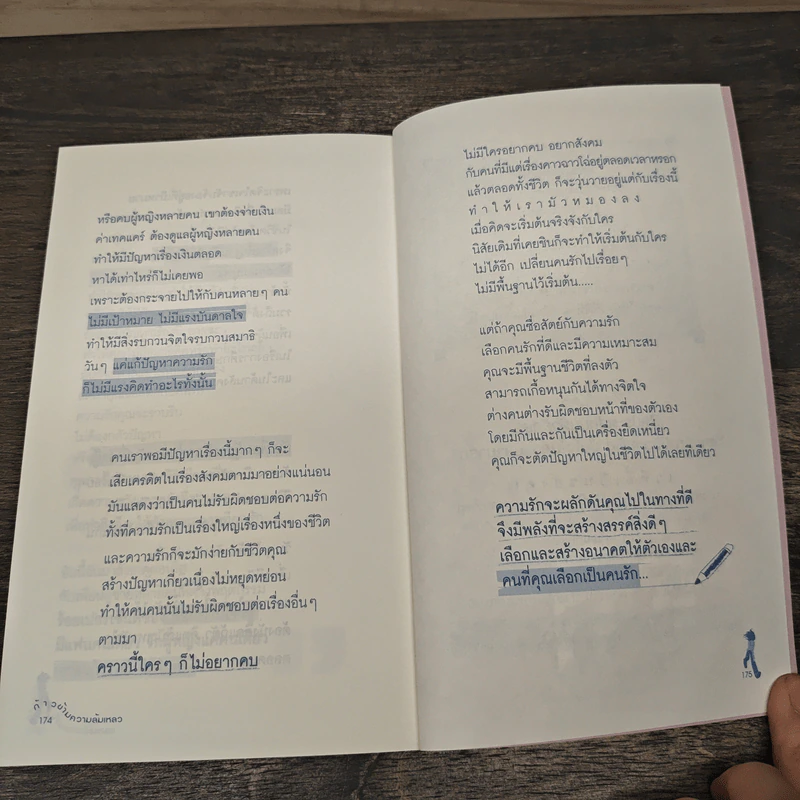 หรือคบผู้หญิงหลายคน เขาต้องจ่ายเงิน
ค่าเทคแคร์ ต้องดูแลผู้หญิงหลายคน
ทำให้มีปัญหาเรื่องเงินตลอด
หาได้เท่าไหร่ก็ไม่เคยพอ
เพราะต้องกระจายไปให้กับคนหลายๆ คน
ไม่มีเป้าหมาย ไม่มีแรงบันดาลใจ
ทำให้มีสิ่งรบกวนจิตใจรบกวนสมาธิ
วันๆ แค่แก้ปัญหาความรัก
ก็ไม่มีแรงคิดทำอะไรทั้งนั้น
คนเราพอมีปัญหาเรื่องนี้มากๆ ก็จะ
เสียเครดิตในเรื่องสังคมตามมาอย่างแน่นอน
มันแสดงว่าเป็นคนไม่รับผิดชอบต่อความรัก
ทั้งที่ความรักเป็นเรื่องใหญ่เรื่องหนึ่งของชีวิต
และความรักก็จะมักง่ายกับชีวิตคุณ
สร้างปัญหาเกี่ยวเนื่องไม่หยุดหย่อน
ทำให้คนคนนั้นไม่รับผิดชอบต่อเรื่องอื่นๆ
ตามมา
คราวนี้ใครๆ ก็ไม่อยากคบ
ก้าวข้ามความล้มเหลว
174
ไม่มีใครอยากคบ อยากสังคม
กับคนที่มีแต่เรื่องคาวฉาวโฉ่อยู่ตลอดเวลาหรอก
แล้วตลอดทั้งชีวิต ก็จะวุ่นวายอยู่แต่กับเรื่องนี้
ทำให้เรามัวหมองลง
เมื่อคิดจะเริ่มต้นจริงจังกับใคร
นิสัยเดิมที่เคยชินก็จะทำให้เริ่มต้นกับใคร
ไม่ได้อีก เปลี่ยนคนรักไปเรื่อยๆ
ไม่มีพื้นฐานไว้เริ่มต้น.....
แต่ถ้าคุณซื่อสัตย์กับความรัก
เลือกคนรักที่ดีและมีความเหมาะสม
คุณจะมีพื้นฐานชีวิตที่ลงตัว
สามารถเกื้อหนุนกันได้ทางจิตใจ
ต่างคนต่างรับผิดชอบหน้าที่ของตัวเอง
โดยมีกันและกันเป็นเครื่องยึดเหนี่ยว
คุณก็จะตัดปัญหาใหญ่ในชีวิตไปได้เลยทีเดียว
ความรักจะผลักดันคุณไปในทางที่ดี
จึงมีพลังที่จะสร้างสรรค์สิ่งดีๆ
เลือกและสร้างอนาคตให้ตัวเองและ
คนที่คุณเลือกเป็นคนรัก...
175